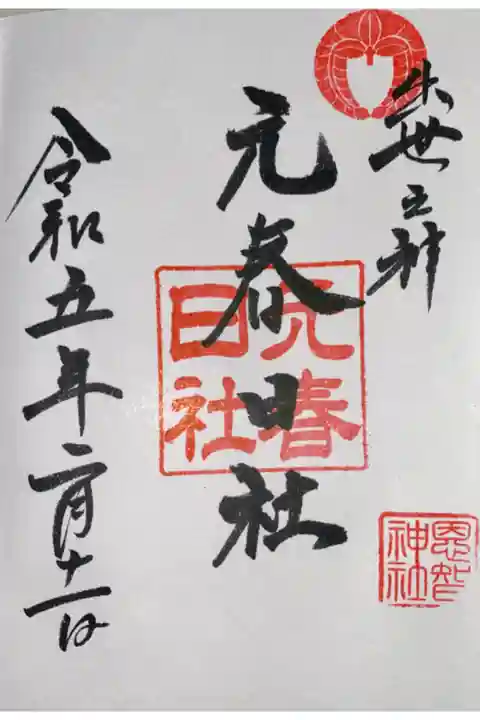 出世之神
元春日社
元春
日社
恩智
神社
令和五年二月十一日